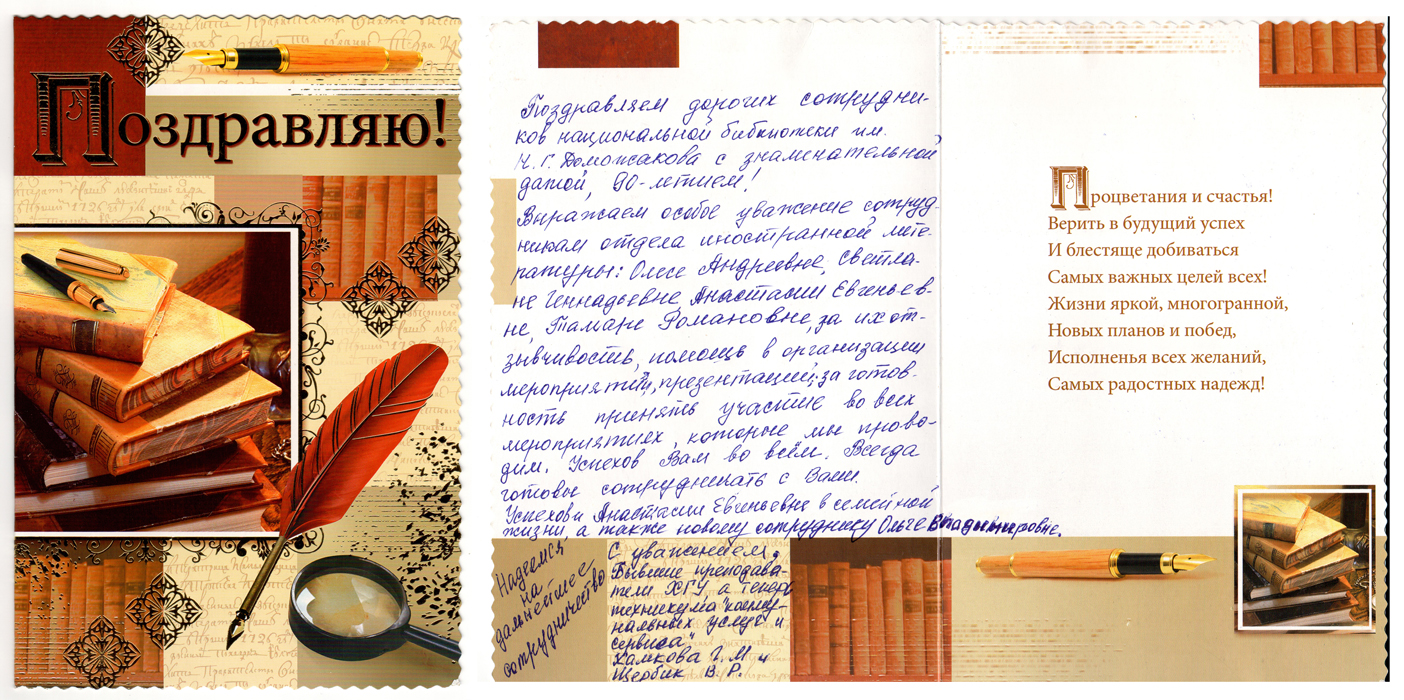 Поздравляю!
Поздравляем дорогих сотрудни-
ков национальной библиотеки им.
Н. Г. Доможакова с знаменательной
датой, 90-летием!
Выражаем особое уважение сотруд-
никам отдела иностранной лите-
ратуры: Олесе Андреевне, Светла-
не Геннадьевне Анастасии Евгеньев-
не, Тамаре Романовне, за их от-
зывчивость, помощь в организации
мероприятий, презентаций; за готов-
ность принять участие во всех
мероприятиях, которые мы прово-
дим. Успехов Вам во всём. Всегда
готовы сотрудничать с Вами.
Успехови Анастасии Евгеньевне в семейной
жизни, а также новому сотруднику Ольге Владимировне.
Надеемся
на
дальнейшее
сотрудничество
С уважением,
Бывшие преподава-
тели ХГУ, а теперь
техникума "комму-
нальных услуг и
сервиса"
Хамкова Г. М и
Щербик В. Р.
Процветания и счастья!
Верить в будущий успех
И блестяще добиваться
Самых важных целей всех!
Жизни яркой, многогранной,
Новых планов и побед,
Исполненья всех желаний,
Самых радостных надежд!